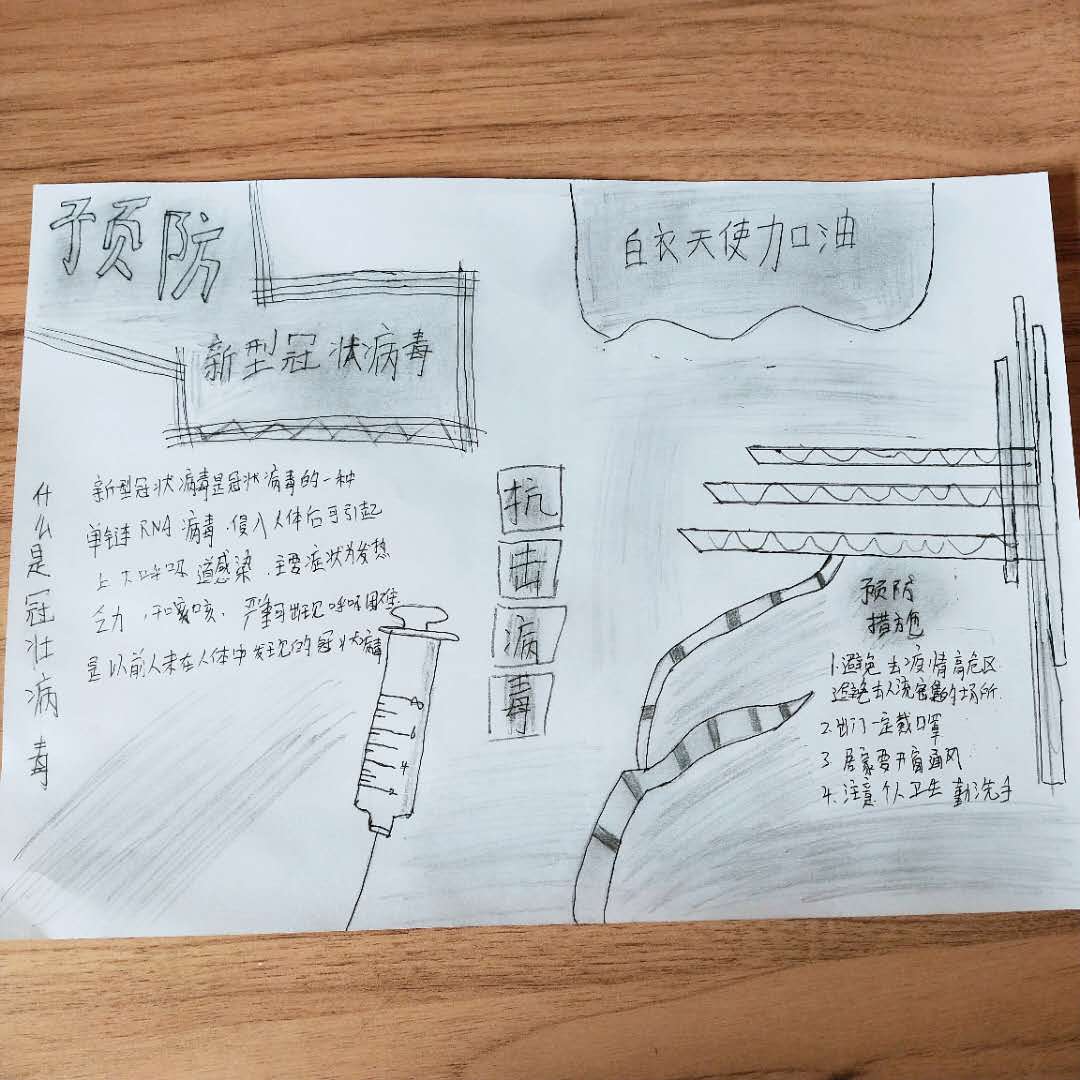 预防
新型冠状病毒
什么是冠壮病毒
新型冠状病毒是冠状病毒的一种
单链RNA病毒,侵入人体后可引起
上下呼吸道感染,主要症状为发热
乏力,干咳,严重可出现呼吸困难
是以前人未在人体中发现的冠状病毒
8
6
4
2
抗击病毒
白衣天使加油
预防
措施
1.避免去疫情高危区
避免去人流密集的场所.
2.出门一定戴口罩
3.居家要开窗通风
4.注意个人卫生 勤洗手